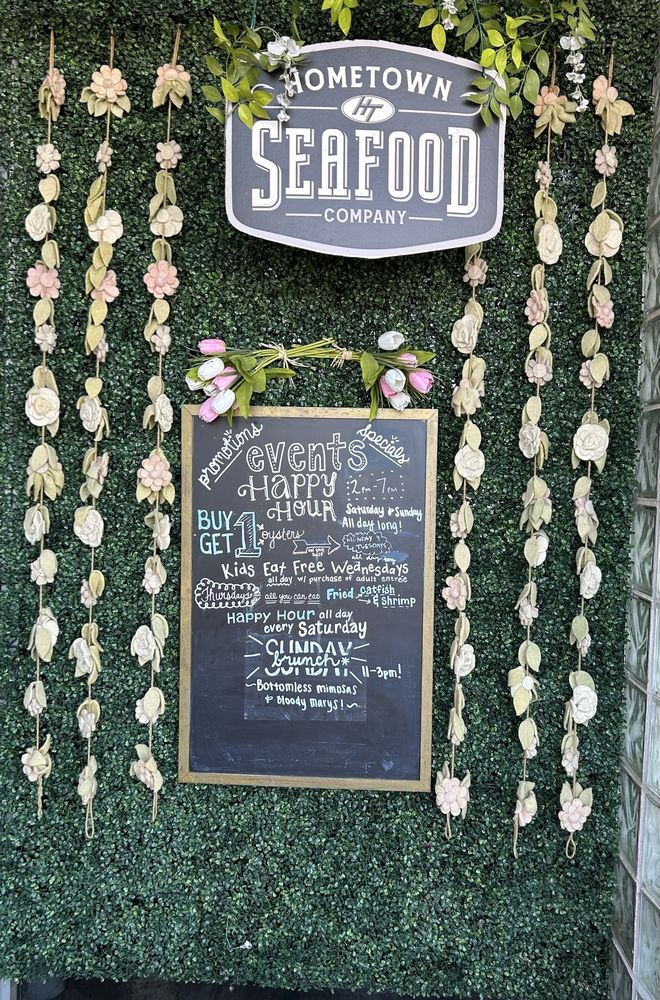 HOMETOWN
HT
SEAFOOD
COMPANY
promotions
specials
events
Happy
Hour
2m-7m
Saturday & Sunday
All day long!
BUY
GET 1
oysters
Monday
Tuesday
all day
Kids Eat Free Wednesdays
all day w/ purchase of adult entree
Thursdays all you can eat Fried catfish
& Shrimp
Happy Hour all day
every Saturday
SUNDAY
brunch
11-3pm!
Bottomless mimosas
& Bloody marys!